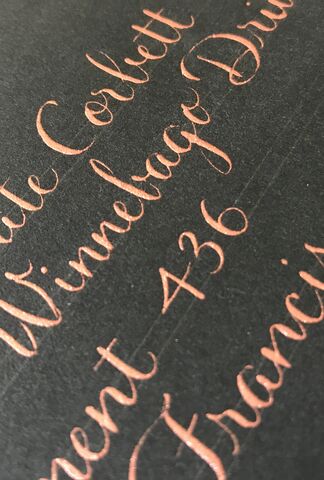 ute Corbett
Winnebago Dri
ment 436
Francis